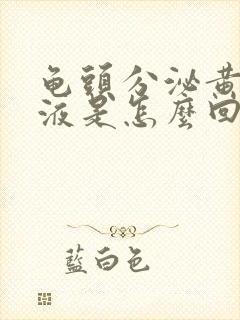 龟頭分泌黃
液是怎麼回
藍白色